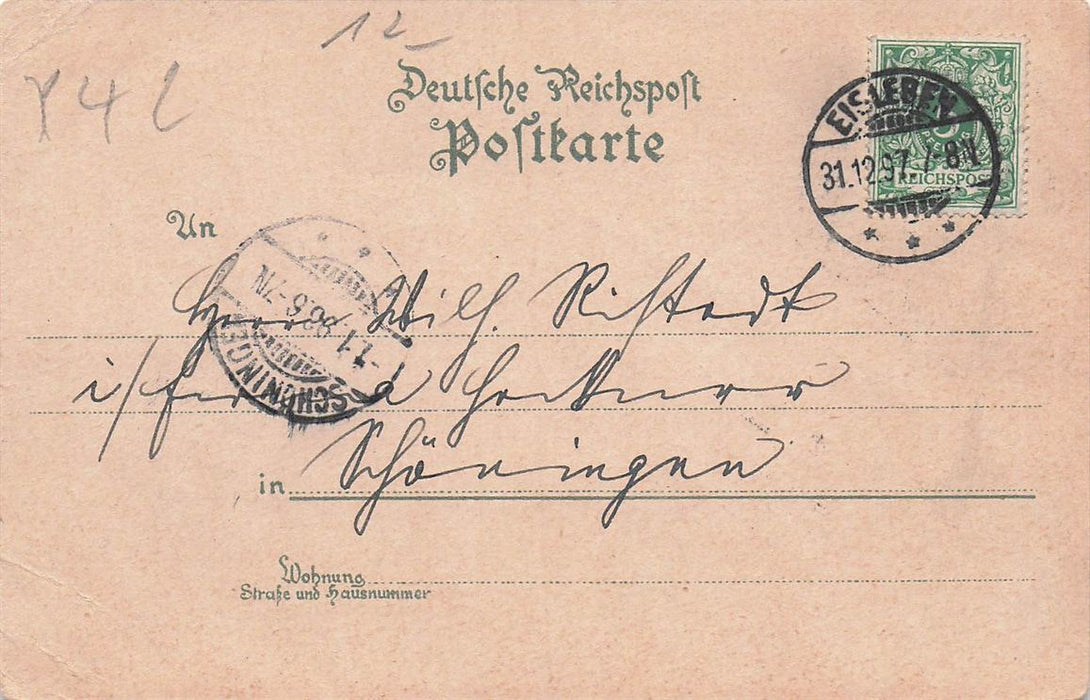 12-
Y 4 L
Deutsche Reichspost
Postkarte
EISLEBEN
31.12.97. 7-8N.
REICHSPOST
An
Herrn Wilh. Ristedt
SCHÖNINGEN
1.1.98. 6-7N
i/
Schöningen
in
Wohnung
Straße und Hausnummer